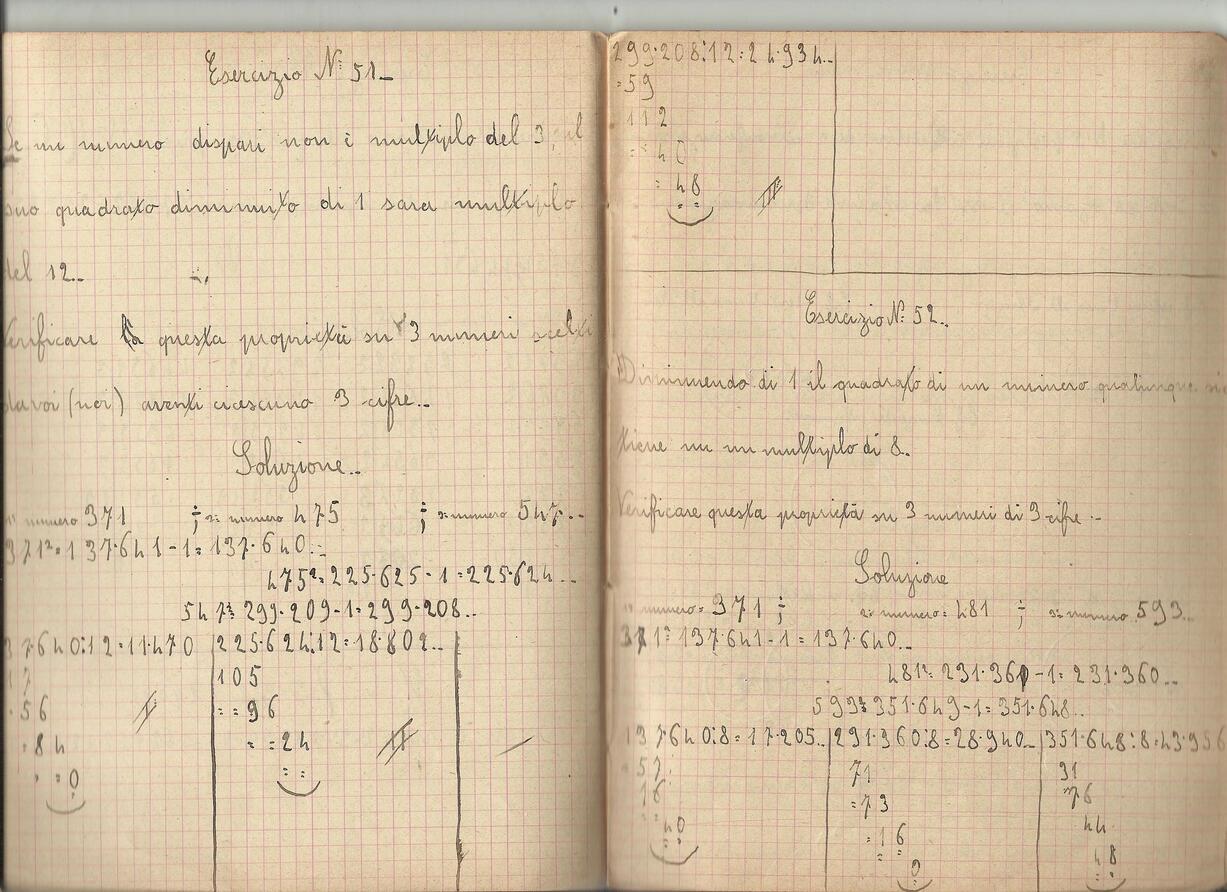 Esercizio N: 51..
Se un numero dispari non è multiplo del 3, il
suo quadrato diminuito di 1 sara multiplo
del 12..
Verificare questa proprietà su 3 numeri scelti
da voi (noi) aventi ciascuno 3 cifre..
Soluzione..
1º numero 371 ; 2º numero 475 ; 3º numero 547..
371²=137·641-1=137·640..
475²=225·625-1=225·624..
547²=299·209-1=299·208..
137640:12=11·470
17
·56
=84
==0
225·624:12=18·802..
105
==96
==24
==
299·208:12=24·934..
=59
112
=40
=48
==
Esercizio N: 52..
Diminuendo di 1 il quadrato di un numero qualunque si
tiene un un multiplo di 8..
Verificare questa proprietà su 3 numeri di 3 cifre.-
Soluzione
1º numero=371 ; 2º numero=481 ; 3º numero 593..
371²=137·641-1=137·640..
481²=231·361-1=231·360..
593²=351·649-1=351·648..
137640:8=17·205..
·57
16
40
==
231·360:8=28·940..
71
=73
=16
==0
351·648:8=43·956
31
"76
44
48
==